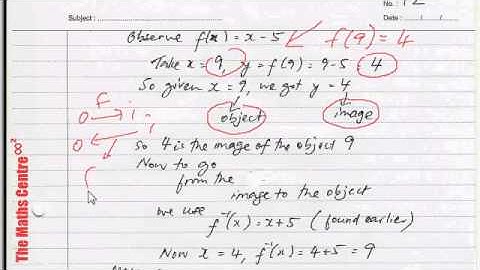 No.: 12
Subject :
Date : / /
Observe f(x) = x - 5
f(9) = 4
Take x = 9, y = f(9) = 9-5 = 4
So given x = 9, we got y = 4
f
o i
o i
object image
So 4 is the image of the object 9
Now to go
from the
image to the object
we use
f⁻¹(x) = x+5 (found earlier)
Now x = 4, f⁻¹(x) = 4+5 = 9
The Maths Centre ∞²